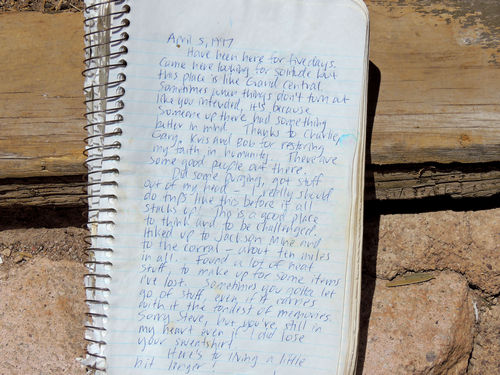 April 5, 1997
Have been here for five days.
Came here looking for solitude but
this place is like Grand Central.
Sometimes when things don't turn out
like you intended, it is because
someone up there had something
better in mind. Thanks to Charlie,
Gary, Kris and Bob for restoring
my faith in humanity. There are
some good people out there.
Did some purging, got stuff
out of my head - I really should
do trips like this before it all
stacks up! This is a good place
to think and to be challenged.
Hiked up to Jackson Mine and
to the corral - about ten miles
in all. I found a lot of neat
stuff, to make up for some items
I've lost. Sometimes you gotta let
go of stuff, even if it carries
with it the fondest of memories.
Sorry Steve, but you're still in
my heart even if I did lose
your sweatshirt.
Here's to living a little
bit longer!